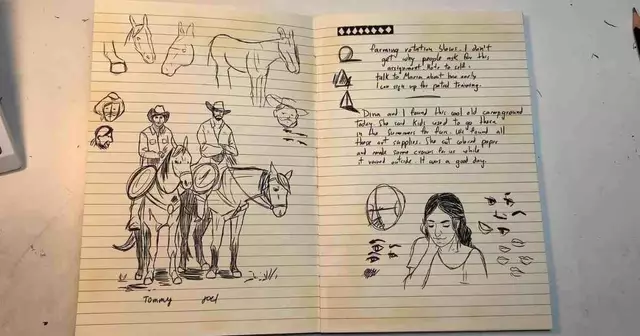 Tommy Joel
farming rotation slows. I don't
get why people ask for this
assignment. Note to self:
talk to Maria about how early
I can sign up for patrol training.
Dina and I found this cool old campground
today. She said kids used to go there
in the summers for fun. We found all
these art supplies. She cut colored paper
and made some crowns for us while
it rained outside. It was a good day.